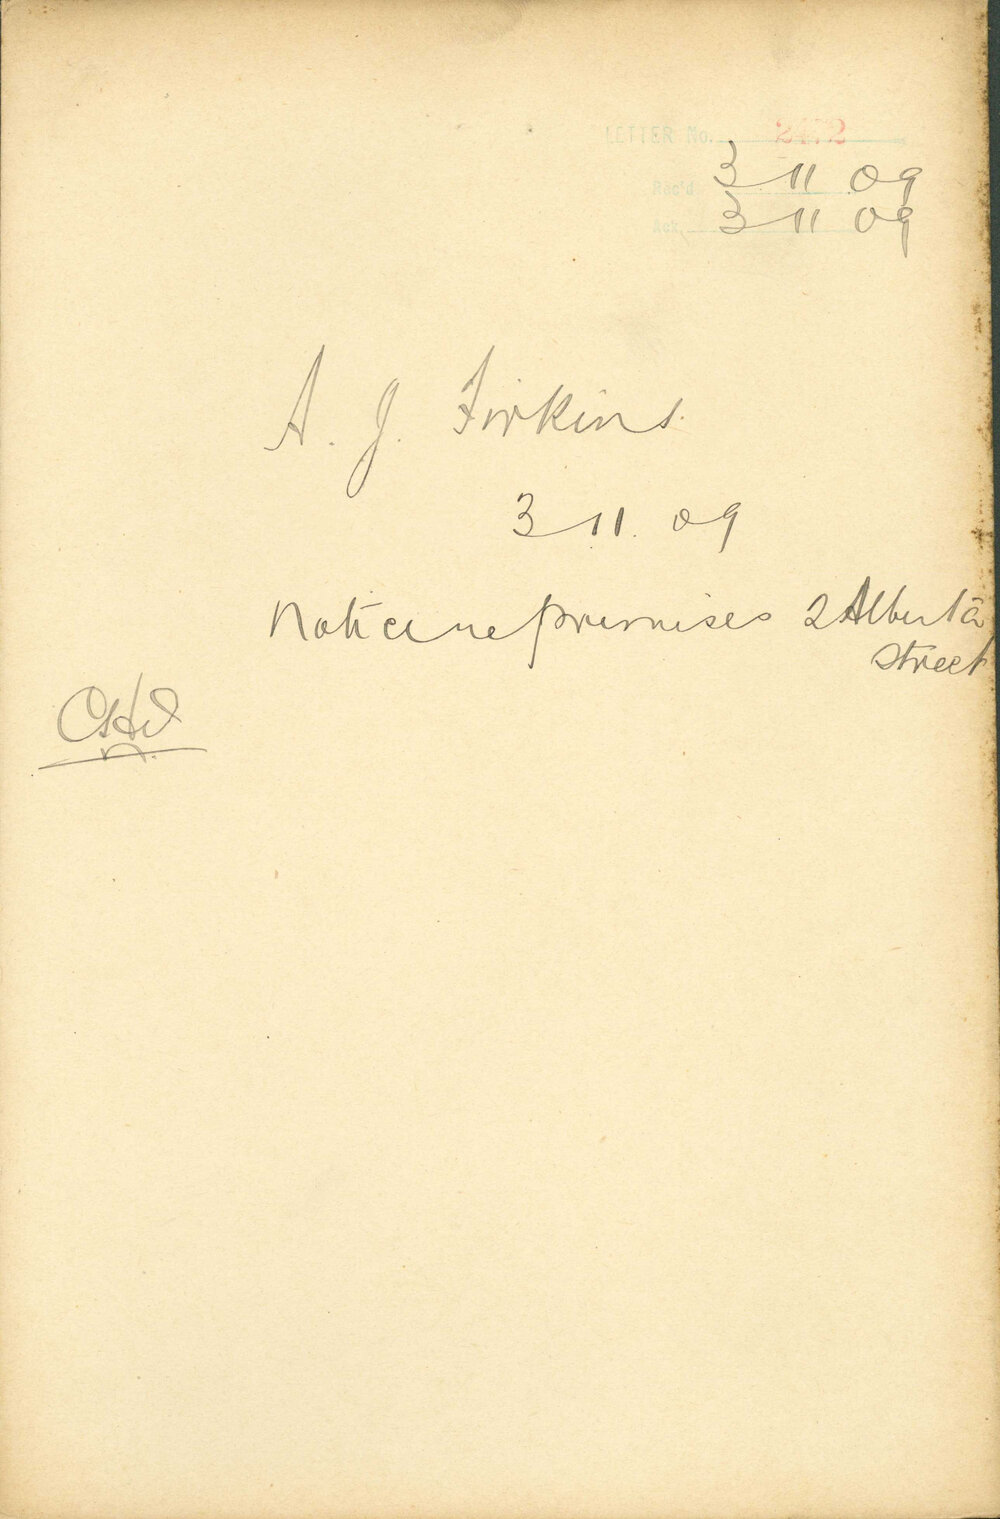 LETTER No. 2472
Rec'd 3 11 09
Ack. 3 11 09
A. J. Firkins
3 11. 09
Notice re premises 2 Alberta
street